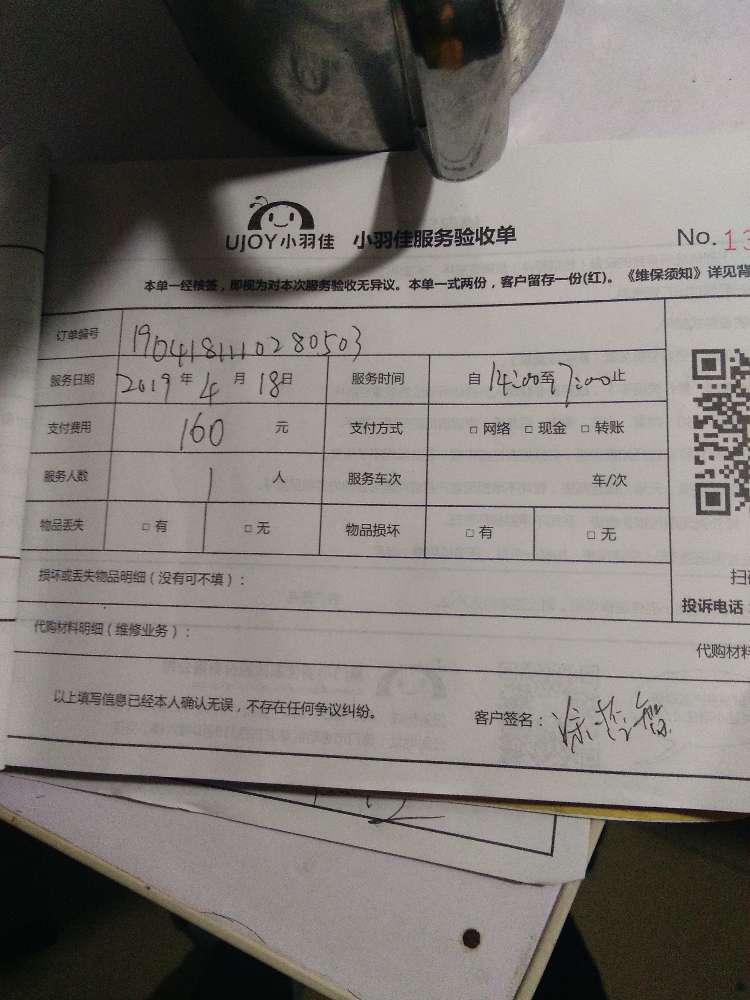 UJOY小羽佳 小羽佳服务验收单 No.13
本单一经核签，即视为对本次服务验收无异议。本单一式两份，客户留存一份(红)。《维保须知》详见背
订单编号 1904181110280503
服务日期 2019年4月18日 服务时间 自14:00至17:00止
支付费用 160元 支付方式 □网络 □现金 □转账
服务人数 1人 服务车次 车/次
物品丢失 □有 □无 物品损坏 □有 □无
损坏或丢失物品明细（没有可不填）：
扫
投诉电话：
代购材料明细（维修业务）：
代购材料
以上填写信息已经本人确认无误，不存在任何争议纠纷。 客户签名：